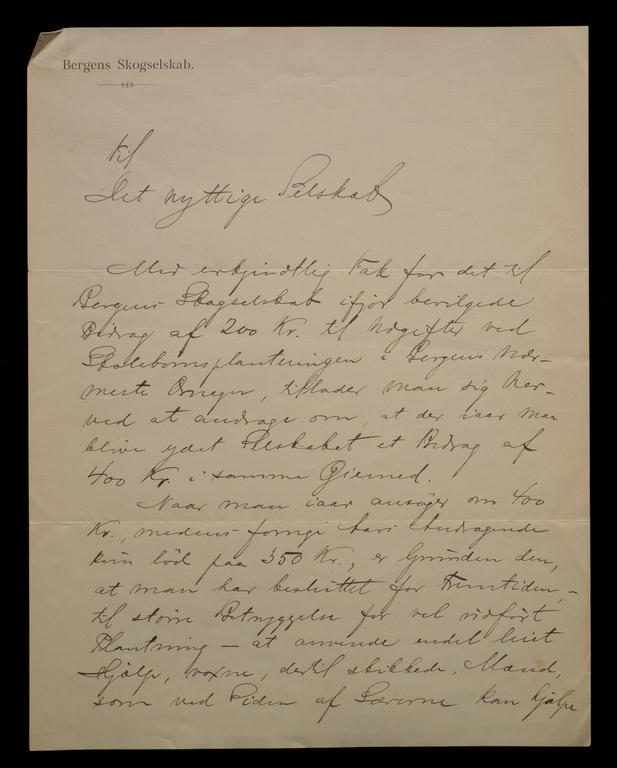 Bergens Skogselskab.
til
Det nyttige Selskab
Med erkjendtlig Tak for det til
Bergens Skogselskab ifjor bevilgede
Bidrag af 200 Kr. til Udgifter ved
Skolebørnsplantningen i Bergens Nær-
meste Omegn, tillader man sig her-
ved at andrage om, at der iaar maa
blive ydet Selskabet et Bidrag af
400 Kr. i samme Øiemed.
Naar man iaar ansøger om 400
Kr., medens forrige Aars Andragende
kun lød paa 350 Kr., er Grunden den,
at man har besluttet for Fremtiden, -
til større Betryggelse for vel udført
Plantning — at anvende endel leiet
Hjælp, voxne, dertil skikkede, Mænd,
som ved Siden af Lærerne kan hjælpe